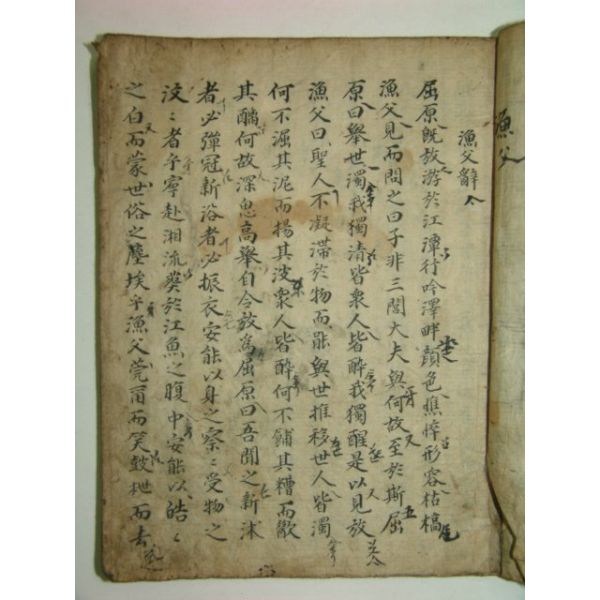 漁父
漁父辭
屈原旣放游於江潭行吟澤畔顔色憔悴形容枯槁
漁父見而問之曰子非三閭大夫與何故至於斯屈
原曰擧世濁我獨淸皆衆人皆醉我獨醒是以見放
漁父曰聖人不凝滯於物而能與世推移世人皆濁
何不淈其泥而揚其波衆人皆醉何不餔其糟而歠
其醨何故深思高擧自令放爲屈原曰吾聞之新沐
者必彈冠新浴者必振衣安能以身之察〻受物之
汶〻者乎寧赴湘流葬於江魚之腹中安能以皓〻
之白而蒙世俗之塵埃乎漁父莞爾而笑鼓枻而去